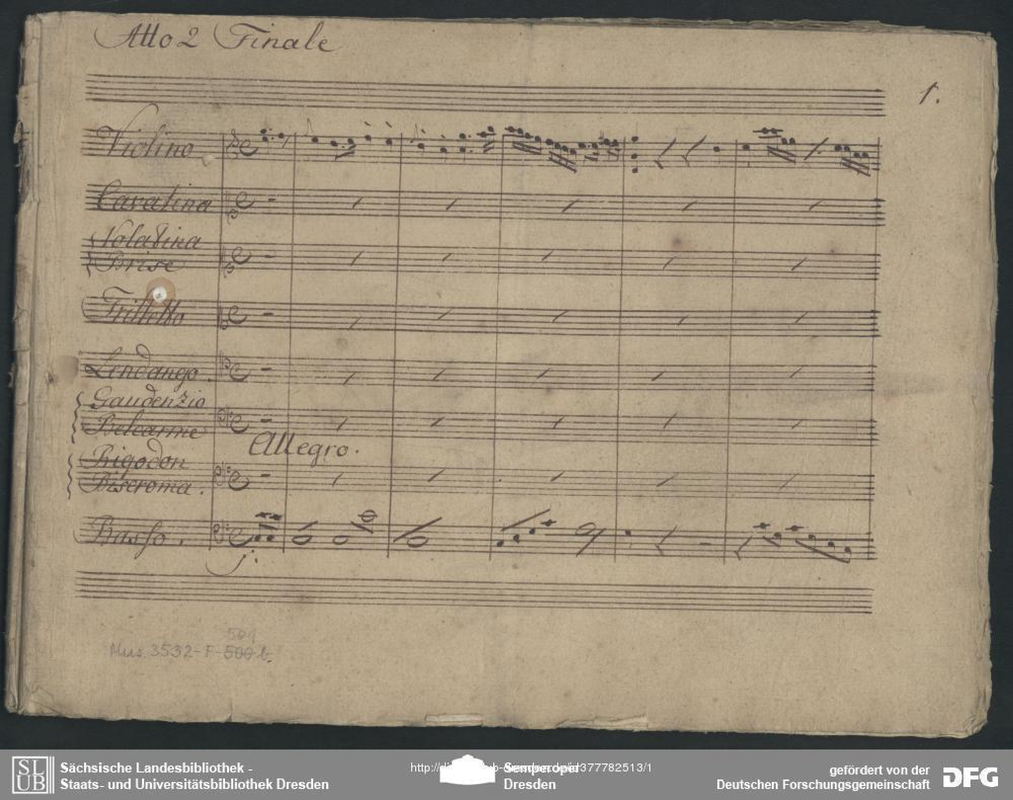 Atto 2 Finale
1.
Violino
Cavatina
Volatina
Brise
Trilletto
Lendango.
Gaudenzio
Belcarme
Allegro.
Rigodon
Biscroma.
Basso.
f.
Mus. 3532-F-500 b.
501
SLUB
Sächsische Landesbibliothek -
Staats- und Universitätsbibliothek Dresden
Semperoper
Dresden
gefördert von der
Deutschen Forschungsgemeinschaft
DFG